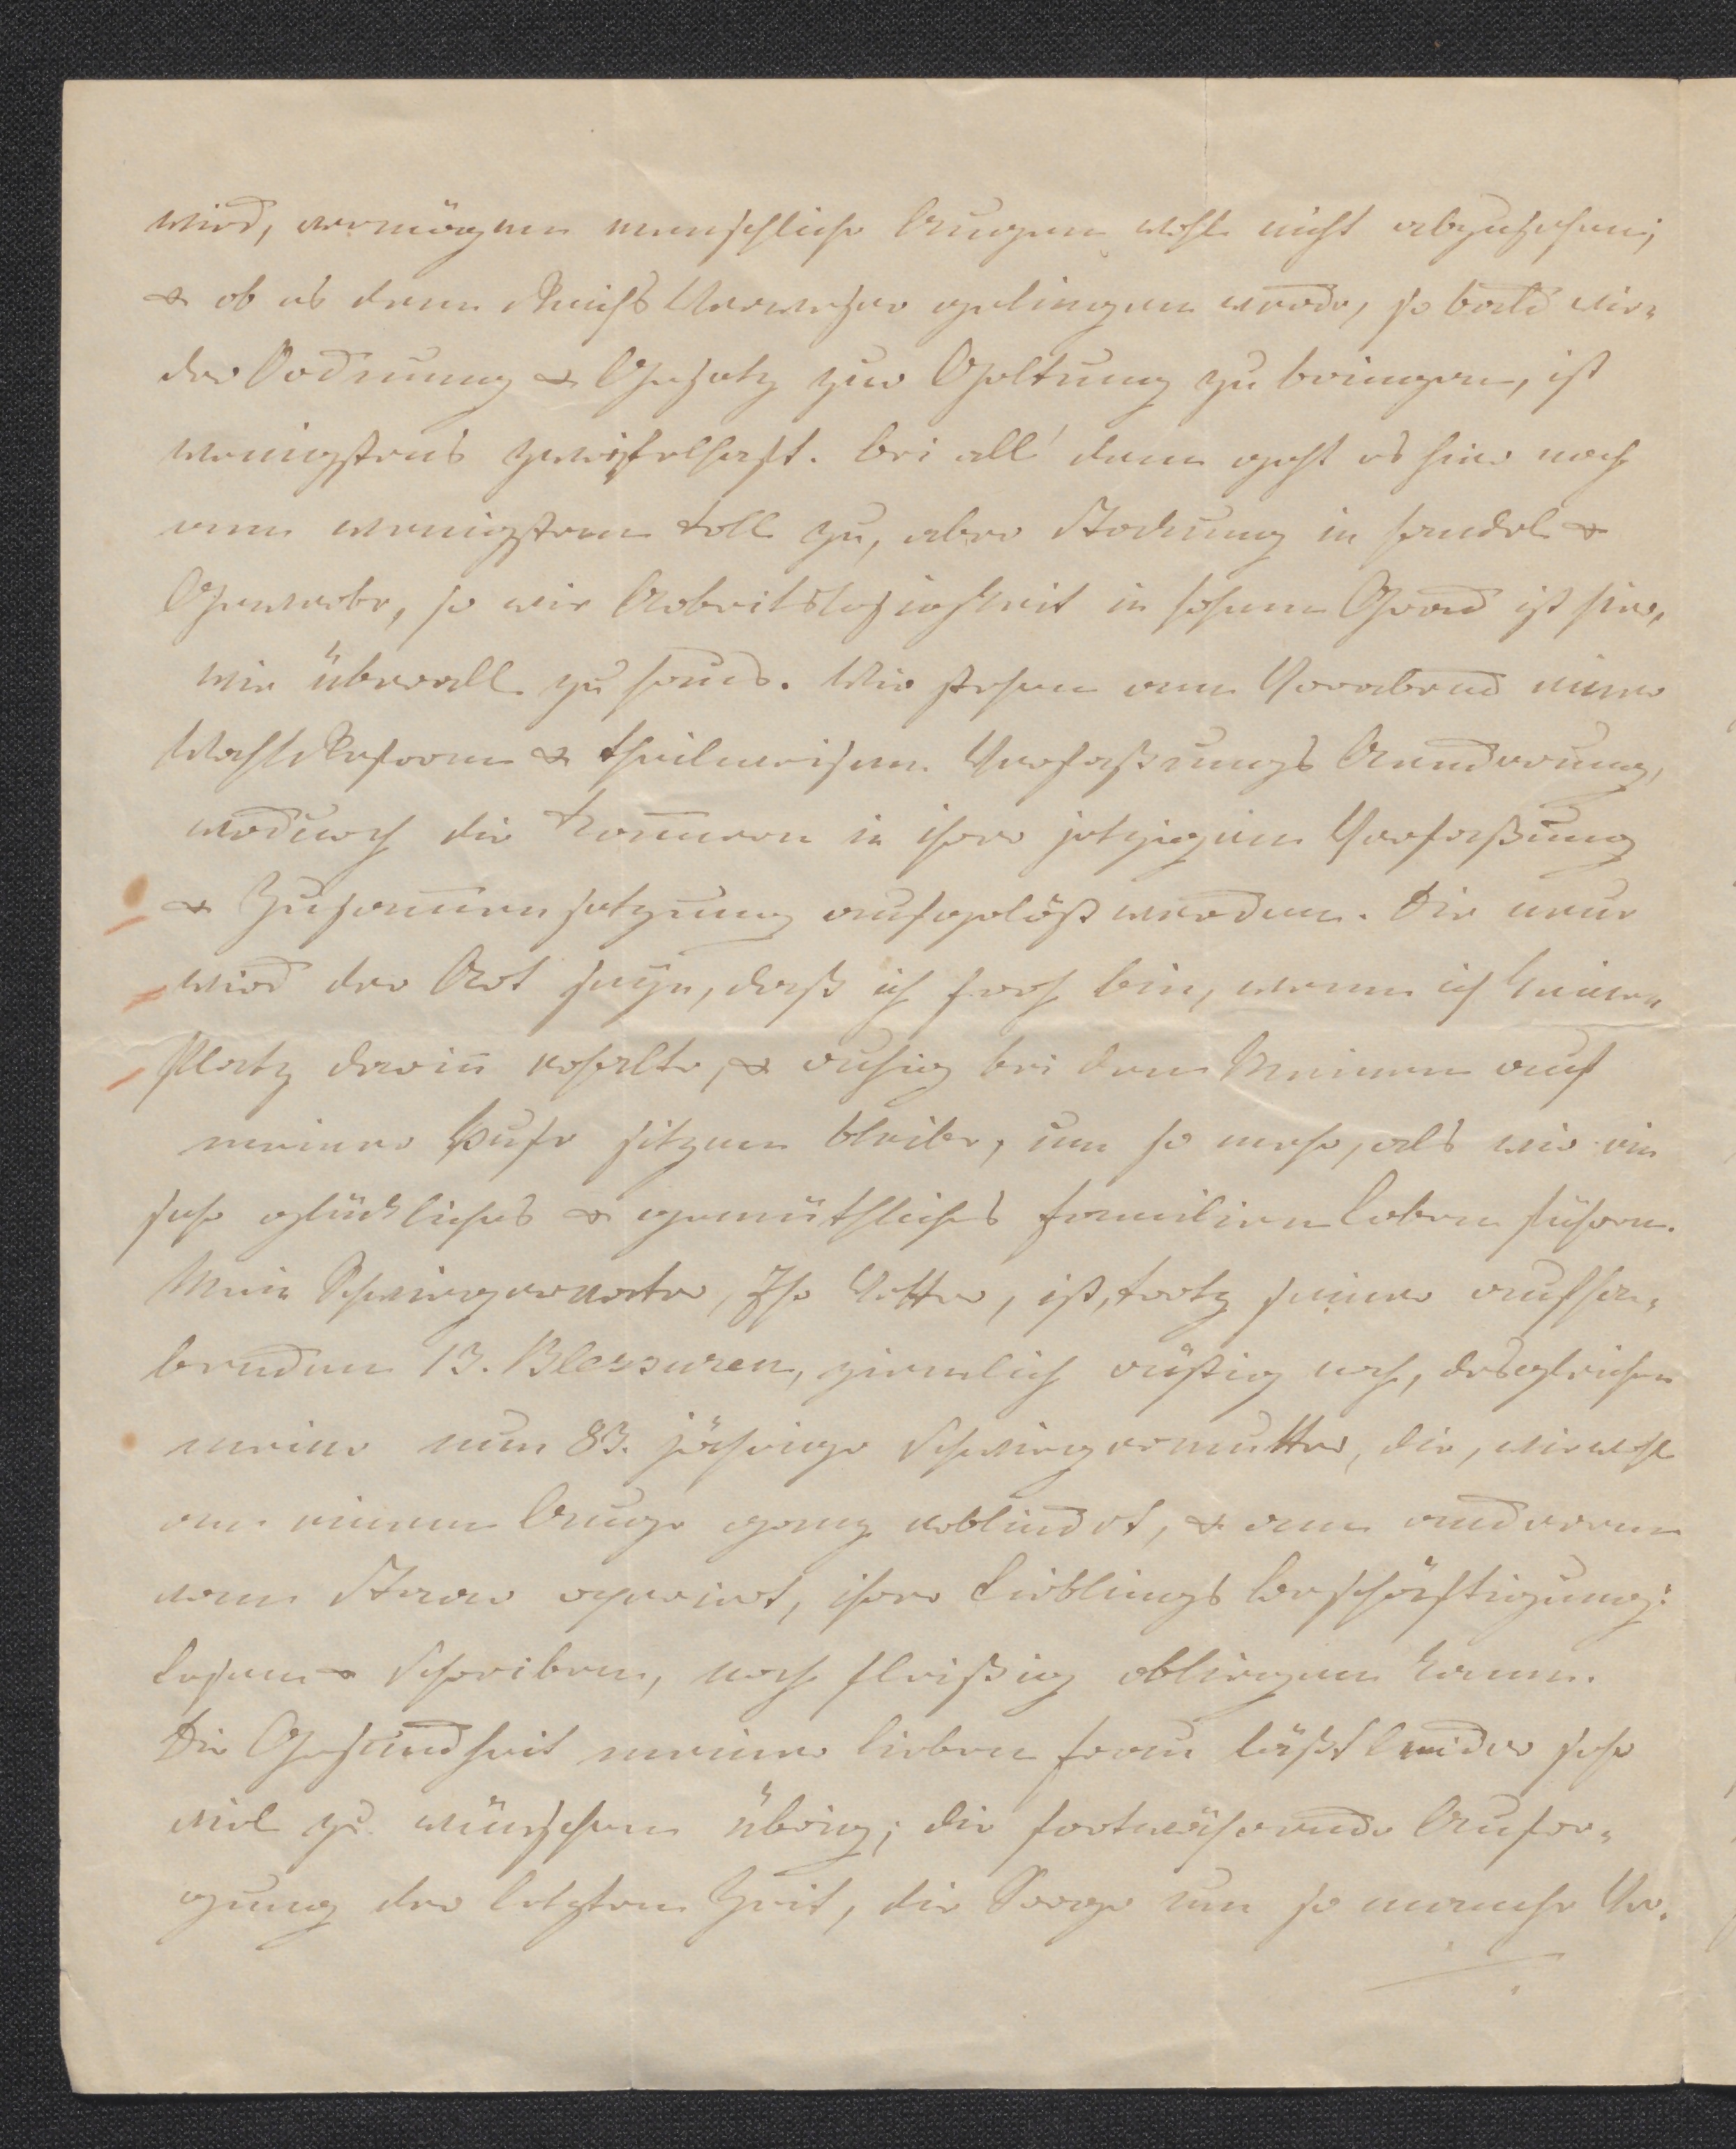 wird, vermögen menschliche Augen wohl nicht abzusehen;
& ob es dem Reichs Verweser gelingen werde, so bald wie-
der Ordnung & Gesetz zur Geltung zu bringen, ist
wenigstens zweifelhaft. bei all' dem geht es hier noch
am wenigsten toll zu, aber Stockung in Handel &
Gewerbe, so wie Arbeitslosigkeit in hohem Grad ist hier,
wie überall zu Haus. Wir stehen am Vorabend einer
Wahl Reform & theilweisen Verfaßungs Aenderung,
wodurch die Kam̄ern in ihrer jetzigen Verfaßung
& Zusam̄ensetzung aufgelößt werden. Die neue
wird der Art seyn, daß ich froh bin, wenn ich keinen
Platz darin̄ erhalte, & ruhig bei den Meinen auf
meiner Hufe sitzen bleibe, um so mehr, als wir ein
sehr glückliches & gemüthliches Familien Leben führen.
Mein Schwiegervater, Ihr Vetter, ist, trotz seiner aufha-
benden 13. Blessuren, ziemlich rüstig noch, desgleichen
meine nun 83. jährige Schwiegermutter, die, wiewohl
am einen Auge ganz erblindet, & am anderen
vom Staar operirt, ihrer Lieblings beschäftigung:
Lesen & Schreiben, noch fleißig obliegen kann.
Die Gesundheit meiner lieben Frau läßt leider sehr
viel zu wünschen übrig; die fortwährende Aufre-
gung der letzten Zeit, die Sorge um so manche Ver-